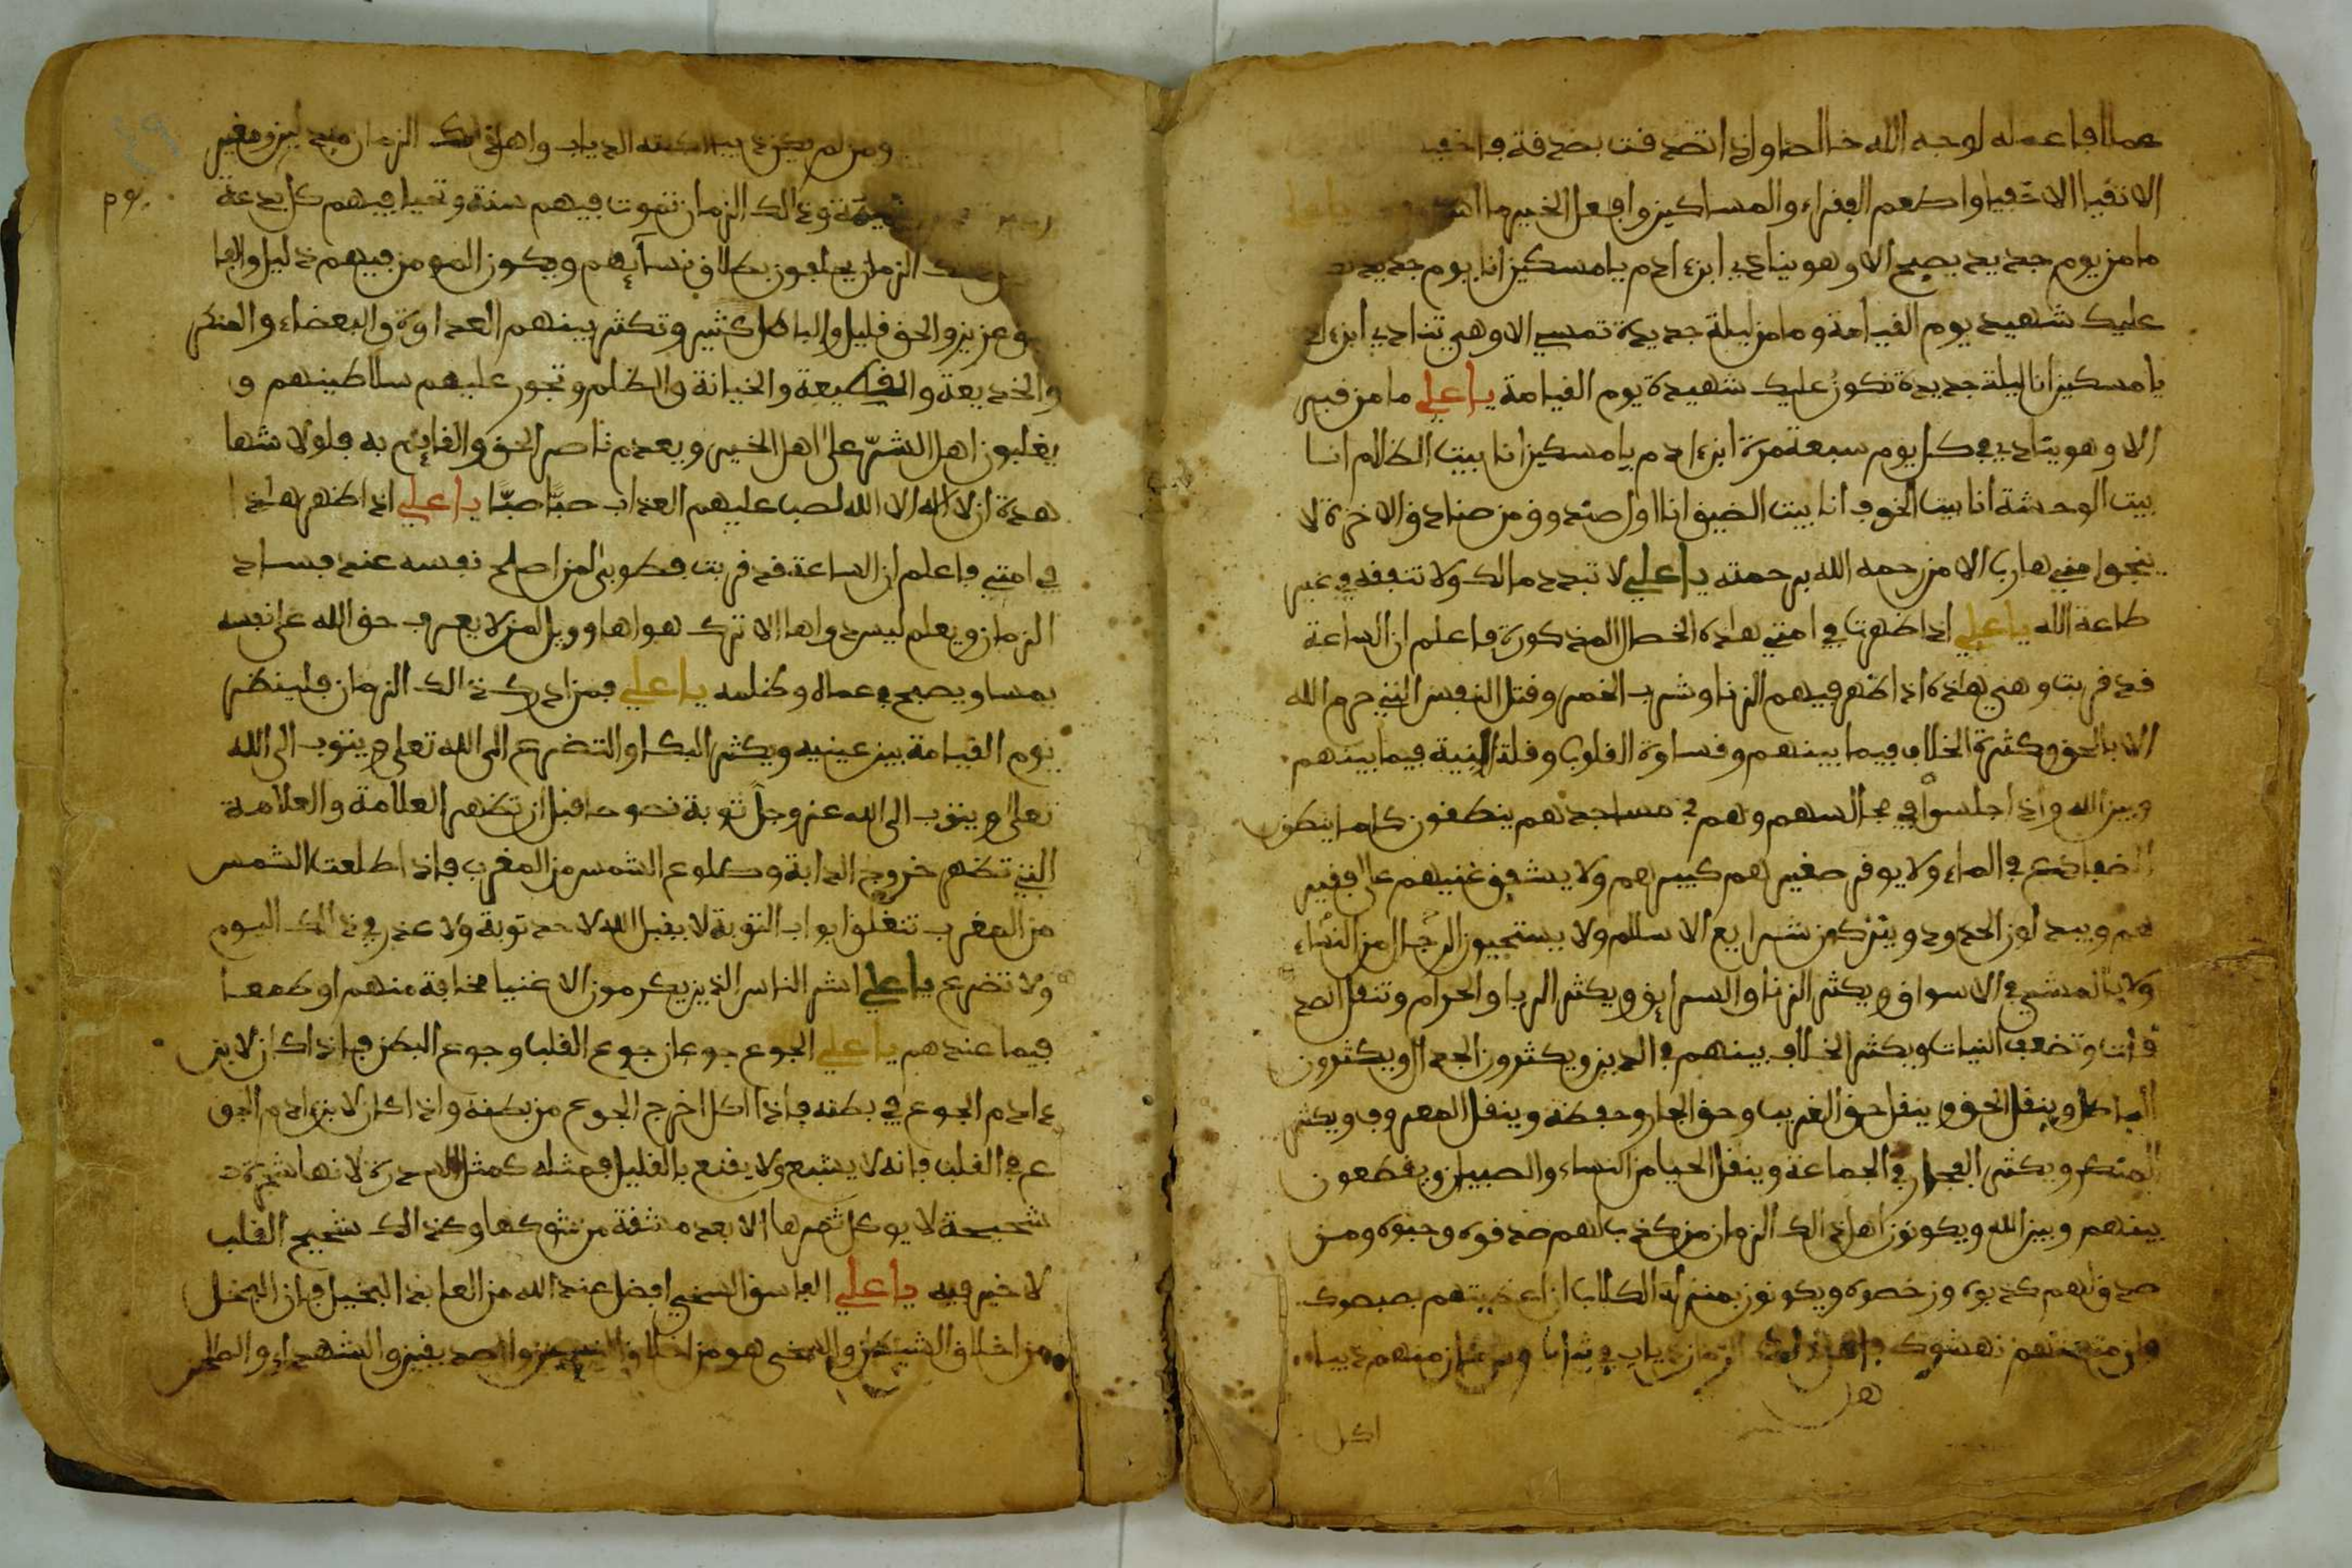 عملا فاعمله لوجه الله خالصا واذا تصدقت بصدقة فاخف
الاتقيا الاخفيا واطعم الفقراء والمساكين وافعل الخير ما يا علي
ما من يوم جديد يصبح الا وهو ينادي ابن ءادم يا مسكين انا يوم جديد
عليك شهيد يوم القيامة وما من ليلة جديدة تمسي الا وهي تنادي ابن ءاد
يا مسكين انا ليلة جديدة نكون عليك شهيدة يوم القيامة يا علي ما من قبر
الا وهو ينادي في كل يوم سبعة مرة ابن ءادم يا مسكين انا بيت الظلام انا
بيت الوحشة انا بيت الخوف انا بيت الضيق انا اول صندوق من صنادق الاخرة لا
ينجوا مني هارب الا من رحمه الله برحمته يا علي لا تبدد مالك ولا تنفقه في غير
طاعة الله يا علي اذا ظهرت في امتي هذه الخصال المذكورة فاعلم ان الساعة
قد قربت وهي هذه اذا ظهر فيهم الزنا وشرب الخمر وقتل النفس التي حرم الله
الا بالحق وكثرة الخلاف فيما بينهم وقساوة القلوب وقلة النية فيما بينهم
وبين الله واذا جلسوا في مجالسهم وهم في مساجدهم ينطقون كما ينطق
الضفادع في الماء ولا يوقر صغيرهم كبيرهم ولا يشفق غنيهم على فقير
هم ويبدلون الحدود ويتركون شرايع الاسلام ولا يستحيون الرجال من النساء
ولا بالمشي في الاسواق ويكثر الزنا والسرايق ويكثر الربا والحرام وتنقل الصد
قات وتضعف النيات ويكثر الخلاف بينهم في الدين ويكثرون الجدال ويكثرون
الباطل وينقل الحق وينقل حق الغريب وحق الجار وحفظه وينقل المعروف ويكثر
المنكر ويكثر الفجار في الجماعة وينقل الحيا من النساء والصبيان ويقطعون
بينهم وبين الله ويكونون اهل ذالك الزمان من كذب لهم صدقوه وحبوه ومن
صدق لهم كذبوه ورخصوه ويكونون بمنزلة الكلاب ان اعطيتهم بصبصوك
وان منعتهم نهشوك فاهل ذلك الزمان ذياب في ثياب منهم ذيبا
اكل
ومن لم يكن ذيبا اكلته الذياب واهل ذلك الزمان من غير
وذالك الزمان تموت فيهم سنة وتحيا فيهم كل بدعة
الزمان يحلفون بطلاق نسآئهم ويكون المومن فيهم ذليل والفا
سق عزيز والحق قليل والباطل كثير وتكثر بينهم العداوة والبغضاء والمنكر
والخديعة والقطيعة والخيانة والظلم وتجور عليهم سلاطينهم و
يغلبون اهل الشر على اهل الخير ويعدم ناصر الحق والقايم به فلولا شها
هدة ان لا اله الا الله لصب عليهم العذاب صبا صبا يا علي اذا ظهر هذا
في امتي فاعلم ان الساعة قد قربت فطوبى لمن اصلح نفسه عند فساد
الزمان ويعلم ليس دواها الا ترك هواها وويل لمن لا يعرف حق الله على نفسه
يمسا ويصبح في عماه وظلمه يا علي فمن ادرك ذالك الزمان فلينظر
يوم القيامة بين عينيه ويكثر البكا والتضرع الى الله تعلى ويتوب الى الله
تعلى ويتوب الى الله عز وجل توبة نصوحا قبل ان تظهر العلامة والعلامة
التي تظهر خروج الدابة وطلوع الشمس من المغرب فاذا طلعت الشمس
من المغرب تتغلق ابواب التوبة لا يقبل الله لاحد توبة ولا عذر في ذالك اليوم
ولا تضرع يا علي اشر الناس الذين يكرمون الاغنيا مخافة منهم او طمعا
فيما عندهم يا علي الجوع جوعان جوع القلب وجوع البطن فاذا كان لابن
ءادم الجوع في بطنه فاذا اكل اخرج الجوع من بطنه واذا كان لابن ءادم الجو
ع في القلب فانه لا يشبع ولا يقنع بالقليل فمثله كمثل السدرة لانها شجرة
شحيحة لا يوكل ثمرها الا بعد مشقة من شوكها وكذالك شحيح القلب
لا خير فيه يا علي الفاسق السخي افضل عند الله من العابد البخيل فان البخل
من اخلاق الشيطان والسخى هو من اخلاق النبيين والصديقين والشهداء والصالحين